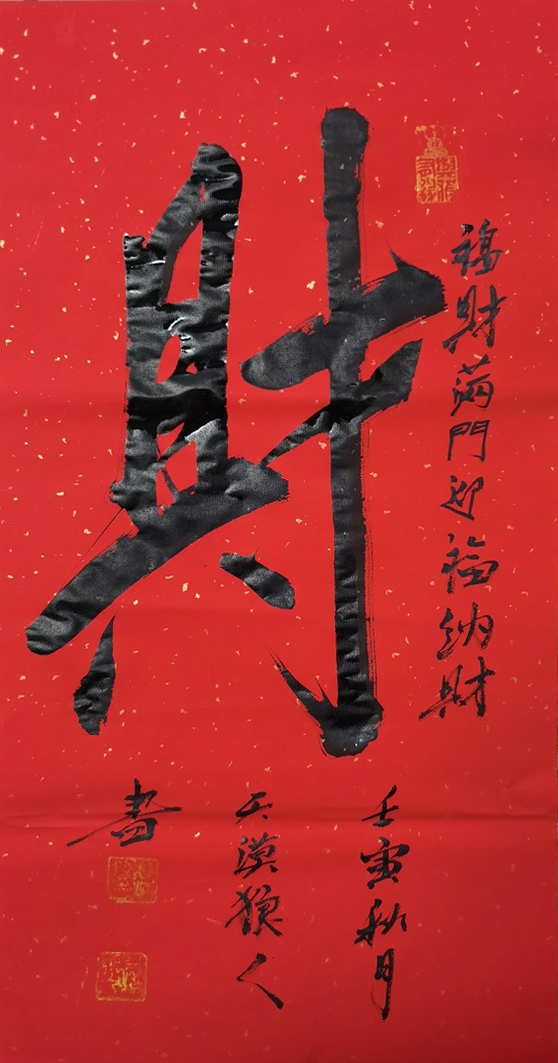 財
福財滿門迎福納財
壬寅秋月
漠人
書